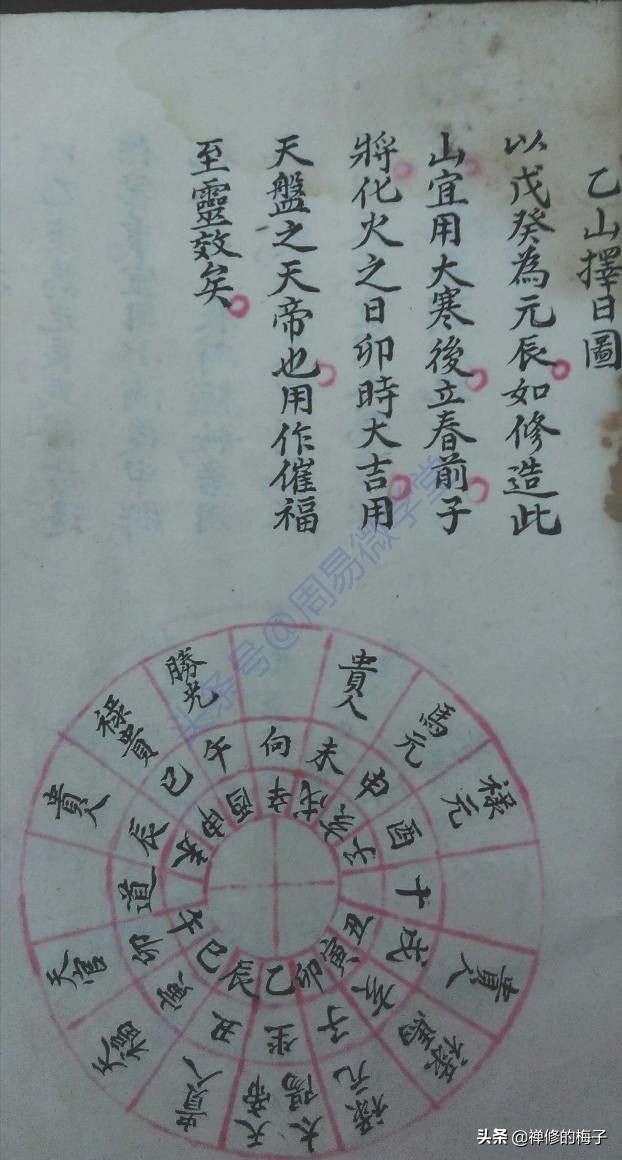 乙山擇日圖
以戊癸為元辰如修造此
山宜用大寒後立春前子
將化火之日卯時大吉用
天盤之天帝也用作催福
至靈效矣
貴人
馬元
祿元
貴人
祿馬
祿元
太陽
天帝
貴人
天福
天官
貴人
祿貴
勝光
向
未
申
酉
十
戌
亥
子
坐
丑
寅
卯
道
辰
巳
午
辛
戌
亥
子
丑
寅
卯
乙
辰
巳
午
未
申
酉
头条号@周易微学堂
头条 @禅修的梅子